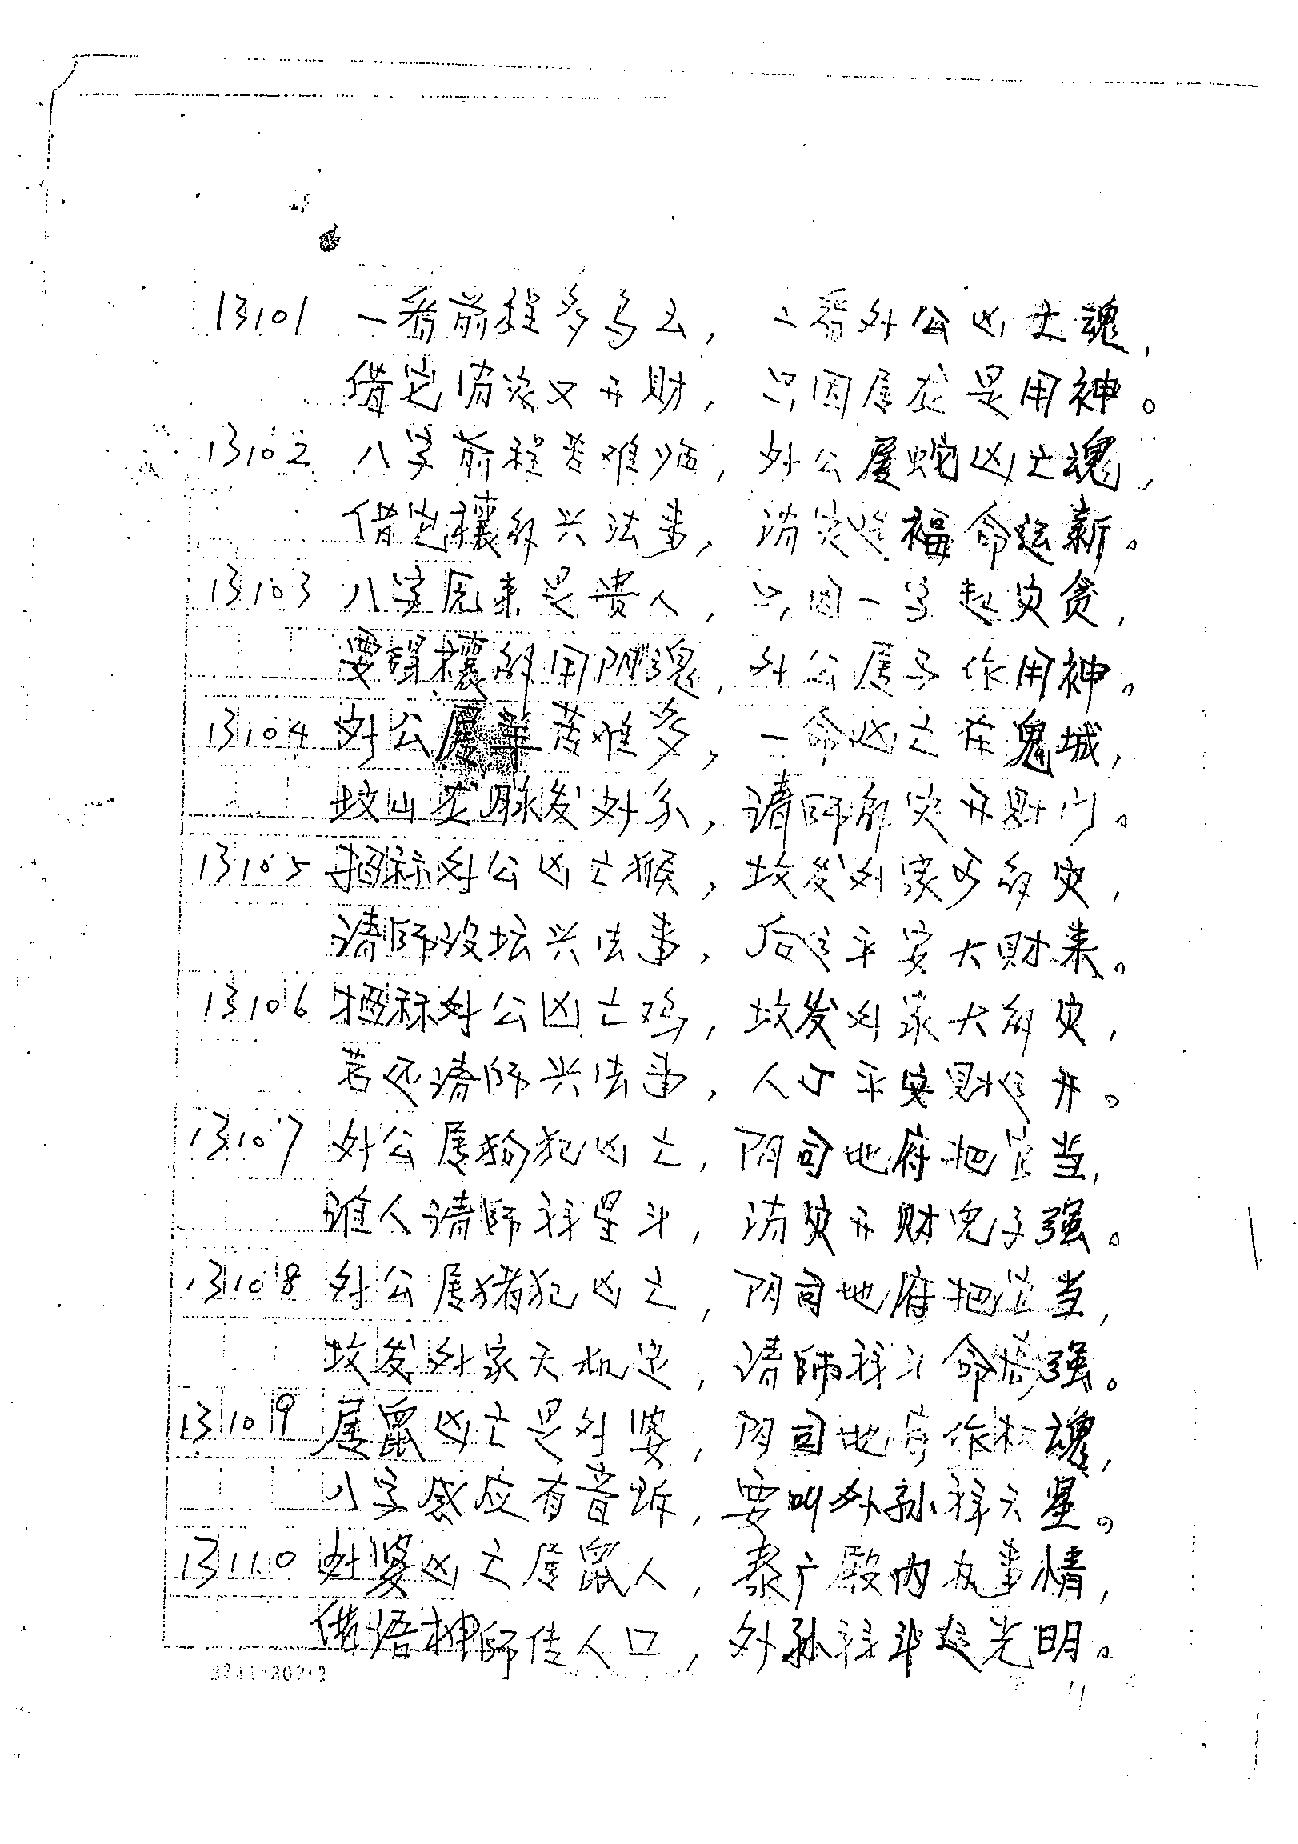 13101 一看前程多乌云，二看外公凶亡魂，
借它消灾又开财，只因属龙是用神。
13102 八字前程苦难临，外公属蛇凶亡魂，
借它禳解兴法事，消灾造福命运新。
13103 八字原来是贵人，只因一字起灾贫，
要得禳解用阴魂，外公属马作用神。
13104 外公属羊苦难多，一命凶亡在鬼城，
坟山龙脉发外系，请师解灾开财门。
13105 招称外公凶亡猴，坟发外家多解灾，
请师设坛兴法事，后运平安大财来。
13106 招称外公凶亡鸡，坟发外家大解灾，
若还请师兴法事，人口平安财运开。
13107 外公属狗犯凶亡，阴司地府把官当，
谁人请师释星斗，消灾开财儿子强。
13108 外公属猪犯凶亡，阴司地府把官当，
坟发外家天机定，请师释斗命格强。
13109 属鼠凶亡是外婆，阴司地府作权魂，
八字感应有音诉，要叫外孙释天星。
13110 外婆凶亡属鼠人，泰广殿内友事情，
借语神师传人口，外孙释斗起光明。
3241·202·2
11